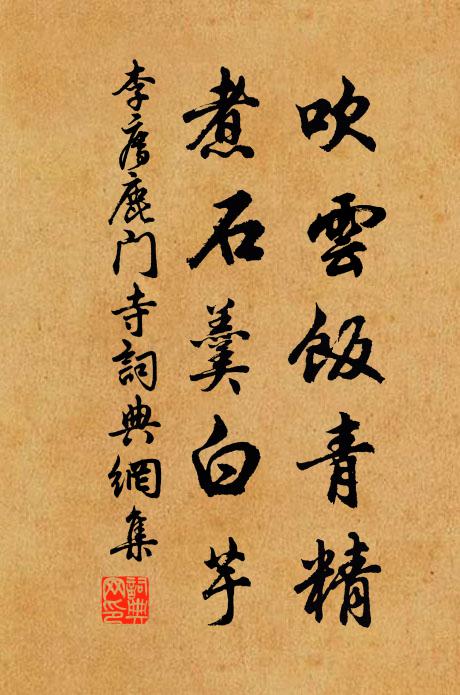 吹雲飯青精
煮石羹白芋
李廌鹿門寺詞典網集
詞典網印